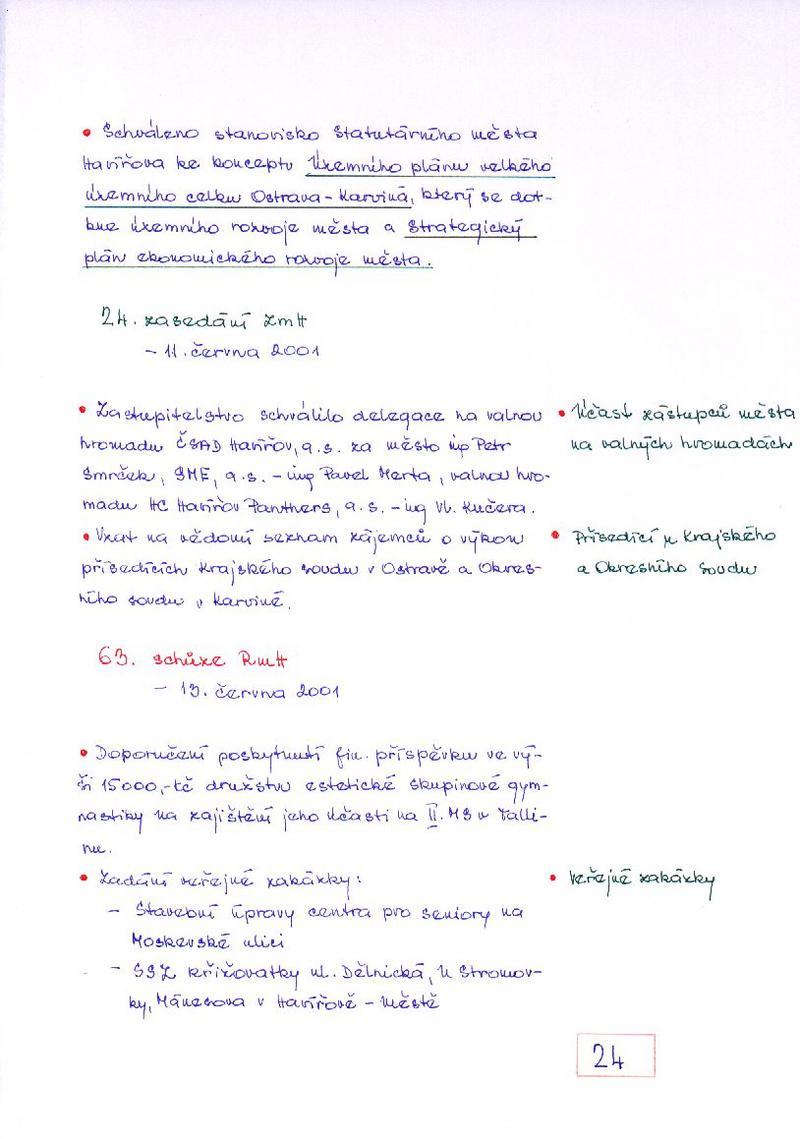 • Schváleno stanovisko Statutárního města
Havířova ke konceptu Územního plánu velkého
územního celku Ostrava-Karviná, který se dot-
kne územního rozvoje města a Strategický
plán ekonomického rozvoje města.
24. zasedání ZmH
- 11. června 2001
• Zastupitelstvo schválilo delegace na valnou
hromadu ČSAD Havířov, a.s. za město Petr
Smrček, SME, a.s. - ing Pavel Merta, valnou hro-
madu HC Havířov Panthers, a.s. - ing Vl. Kučera.
• Účast zástupců města
na valných hromadách
• Vzat na vědomí seznam zájemců o výkon
přísedících Krajského soudu v Ostravě a Okres-
ního soudu v Karviné.
• Přísedící u Krajského
a Okresního soudu
63. schůze RmH
- 13. června 2001
• Doporučení poskytnutí fin. příspěvku ve vý-
ši 15000,-Kč družstvu estetické skupinové gym-
nastiky na zajištění jeho účasti na II. MS v Talli-
nu.
• Zadání veřejné zakázky:
- Stavební úpravy centra pro seniory na
Moskevské ulici
- SSZ křižovatky ul. Dělnická, U Stromov-
ky, Mánesova v Havířově - Městě
• Veřejné zakázky
24